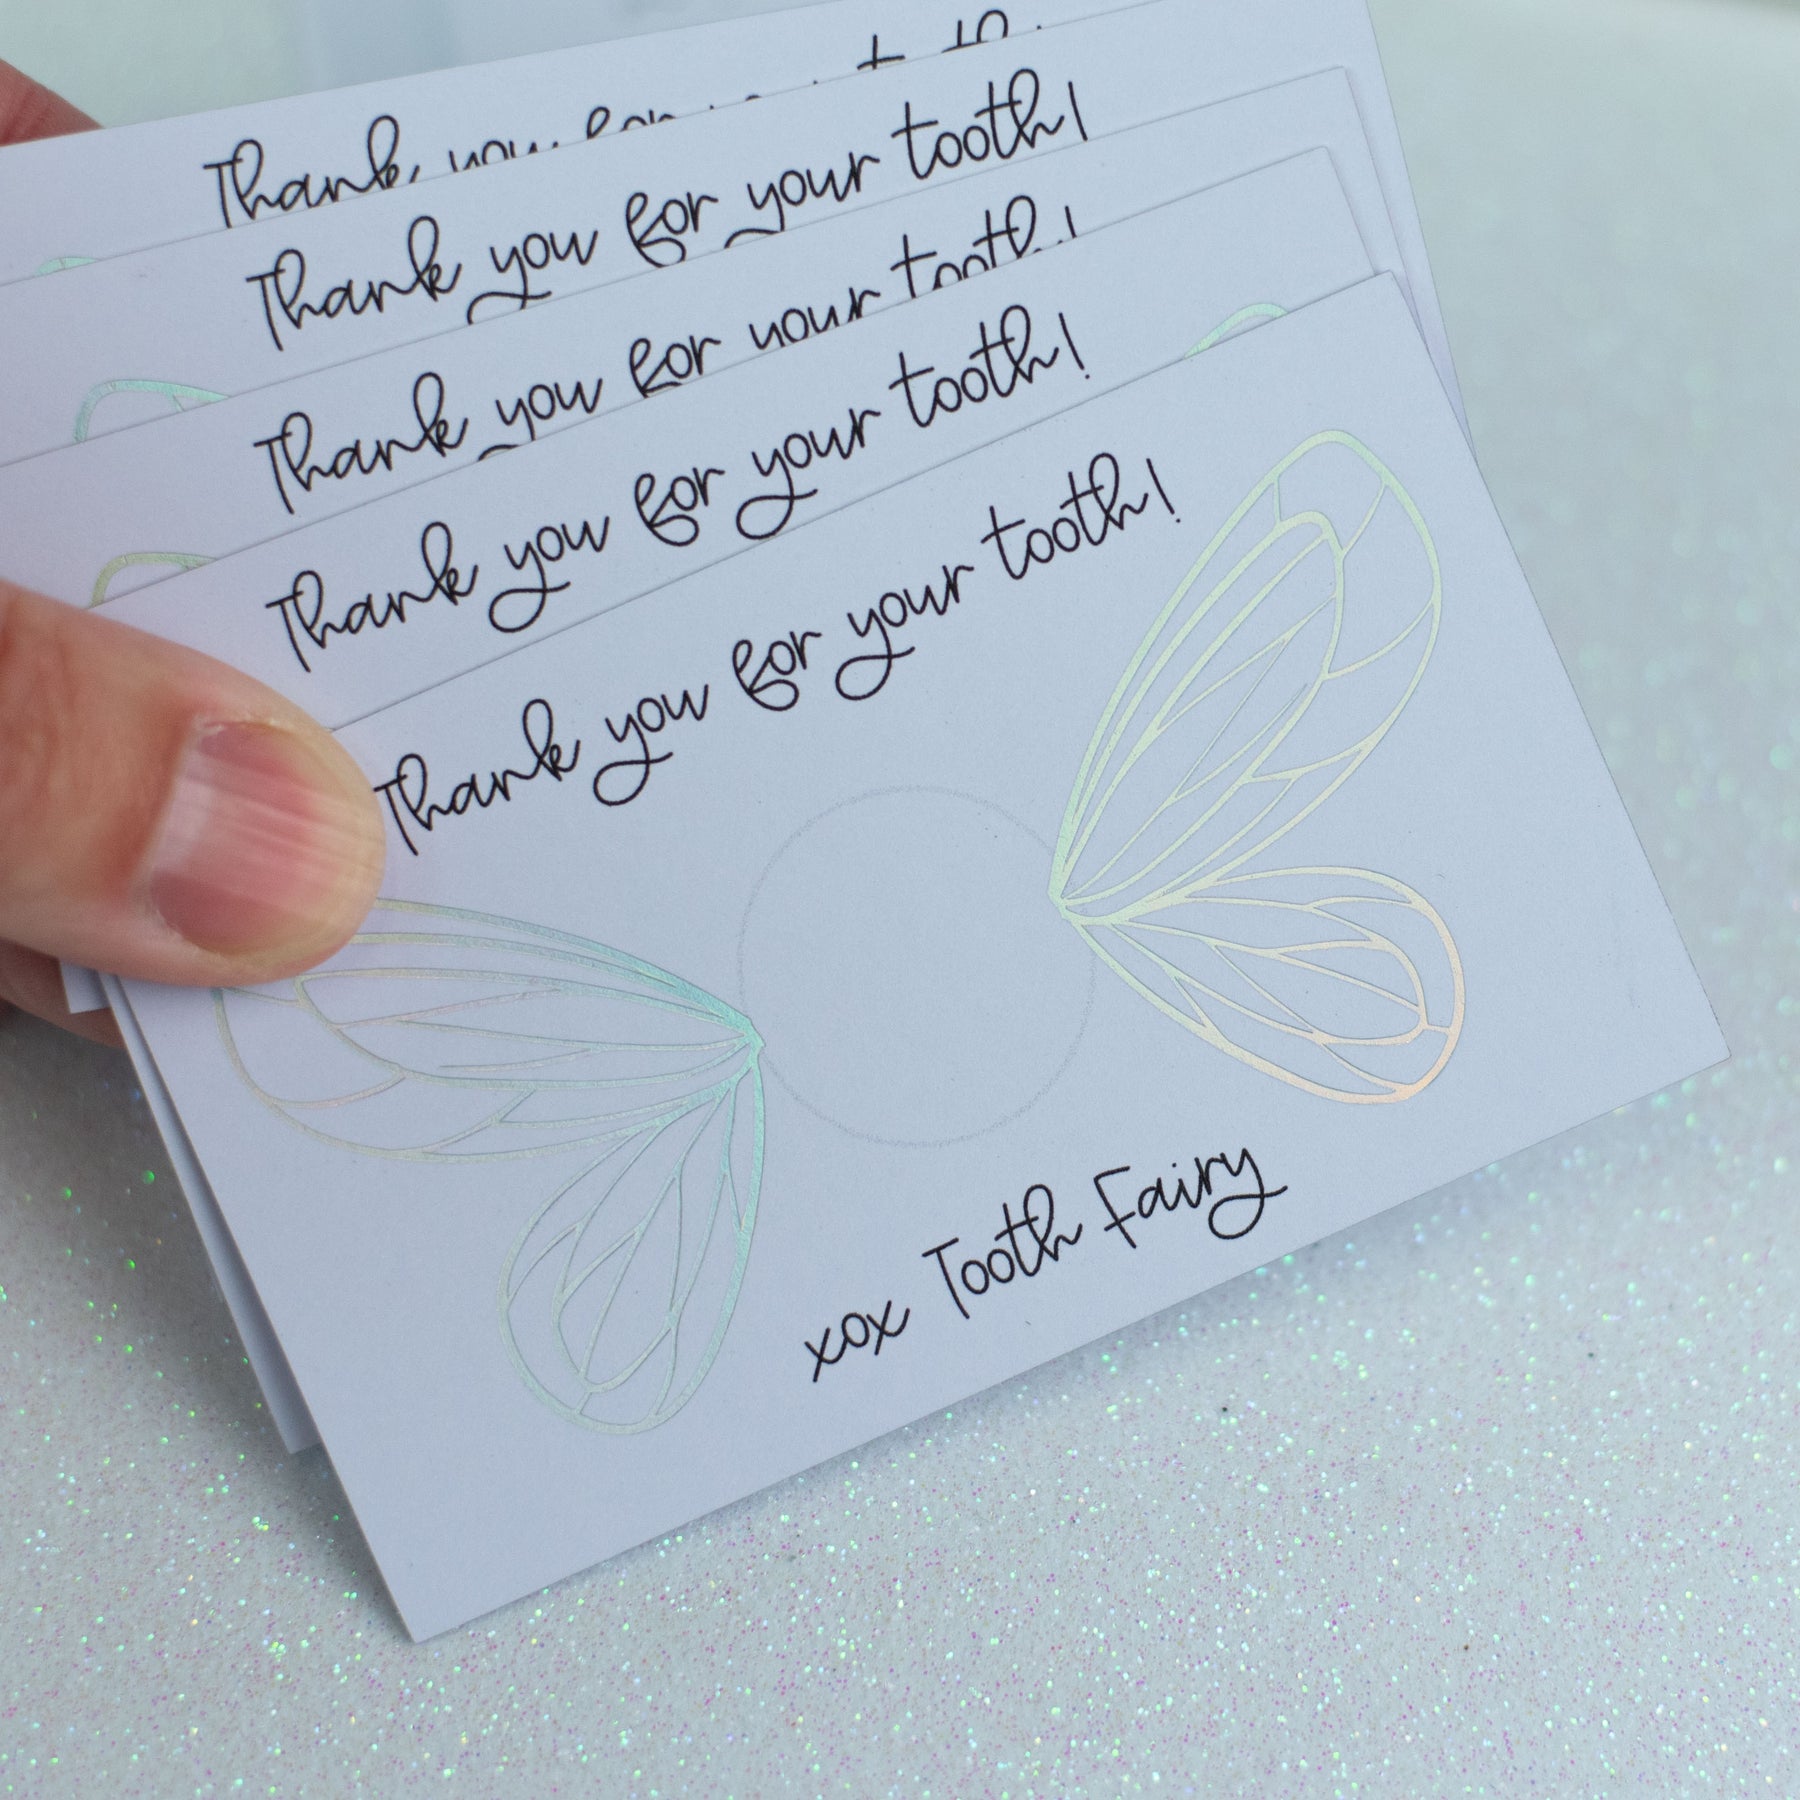 Thank you for
Thank you for your tooth!
Thank you for your tooth!
Thank you for your tooth!
Thank you for your tooth!
xox Tooth Fairy